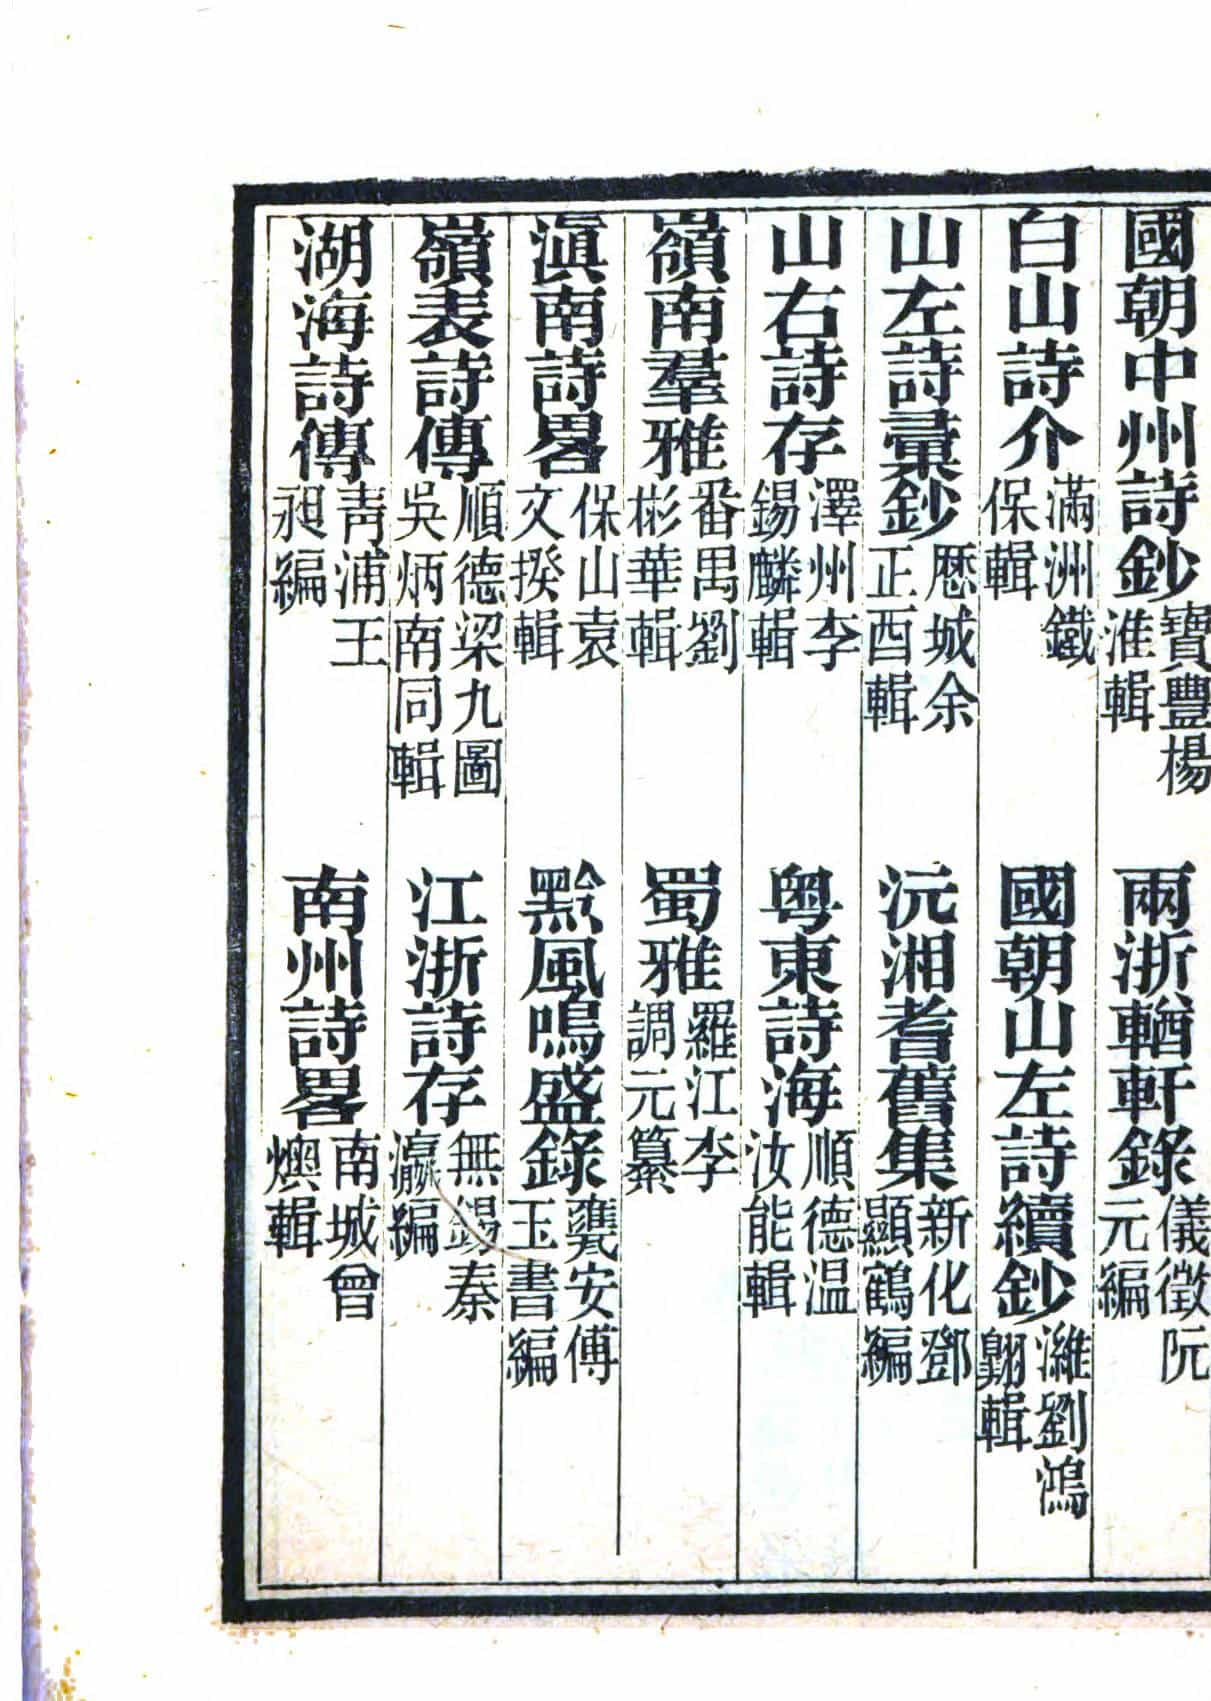 國朝中州詩鈔寶豐楊淮輯　兩浙輶軒錄儀徵阮元編
白山詩介滿洲鐵保輯　國朝山左詩續鈔濰劉鴻翺輯
山左詩彙鈔歷城余正酉輯　沅湘耆舊集新化鄧顯鶴編
山右詩存澤州李錫麟輯　粵東詩海順德温汝能輯
嶺南羣雅番禺劉彬華輯　蜀雅羅江李調元纂
滇南詩畧保山袁文揆輯　黔風鳴盛錄甕安傅玉書編
嶺表詩傳順德梁九圖吳炳南同輯　江浙詩存無錫秦瀛編
湖海詩傳青浦王昶編　南州詩畧南城曾燠輯